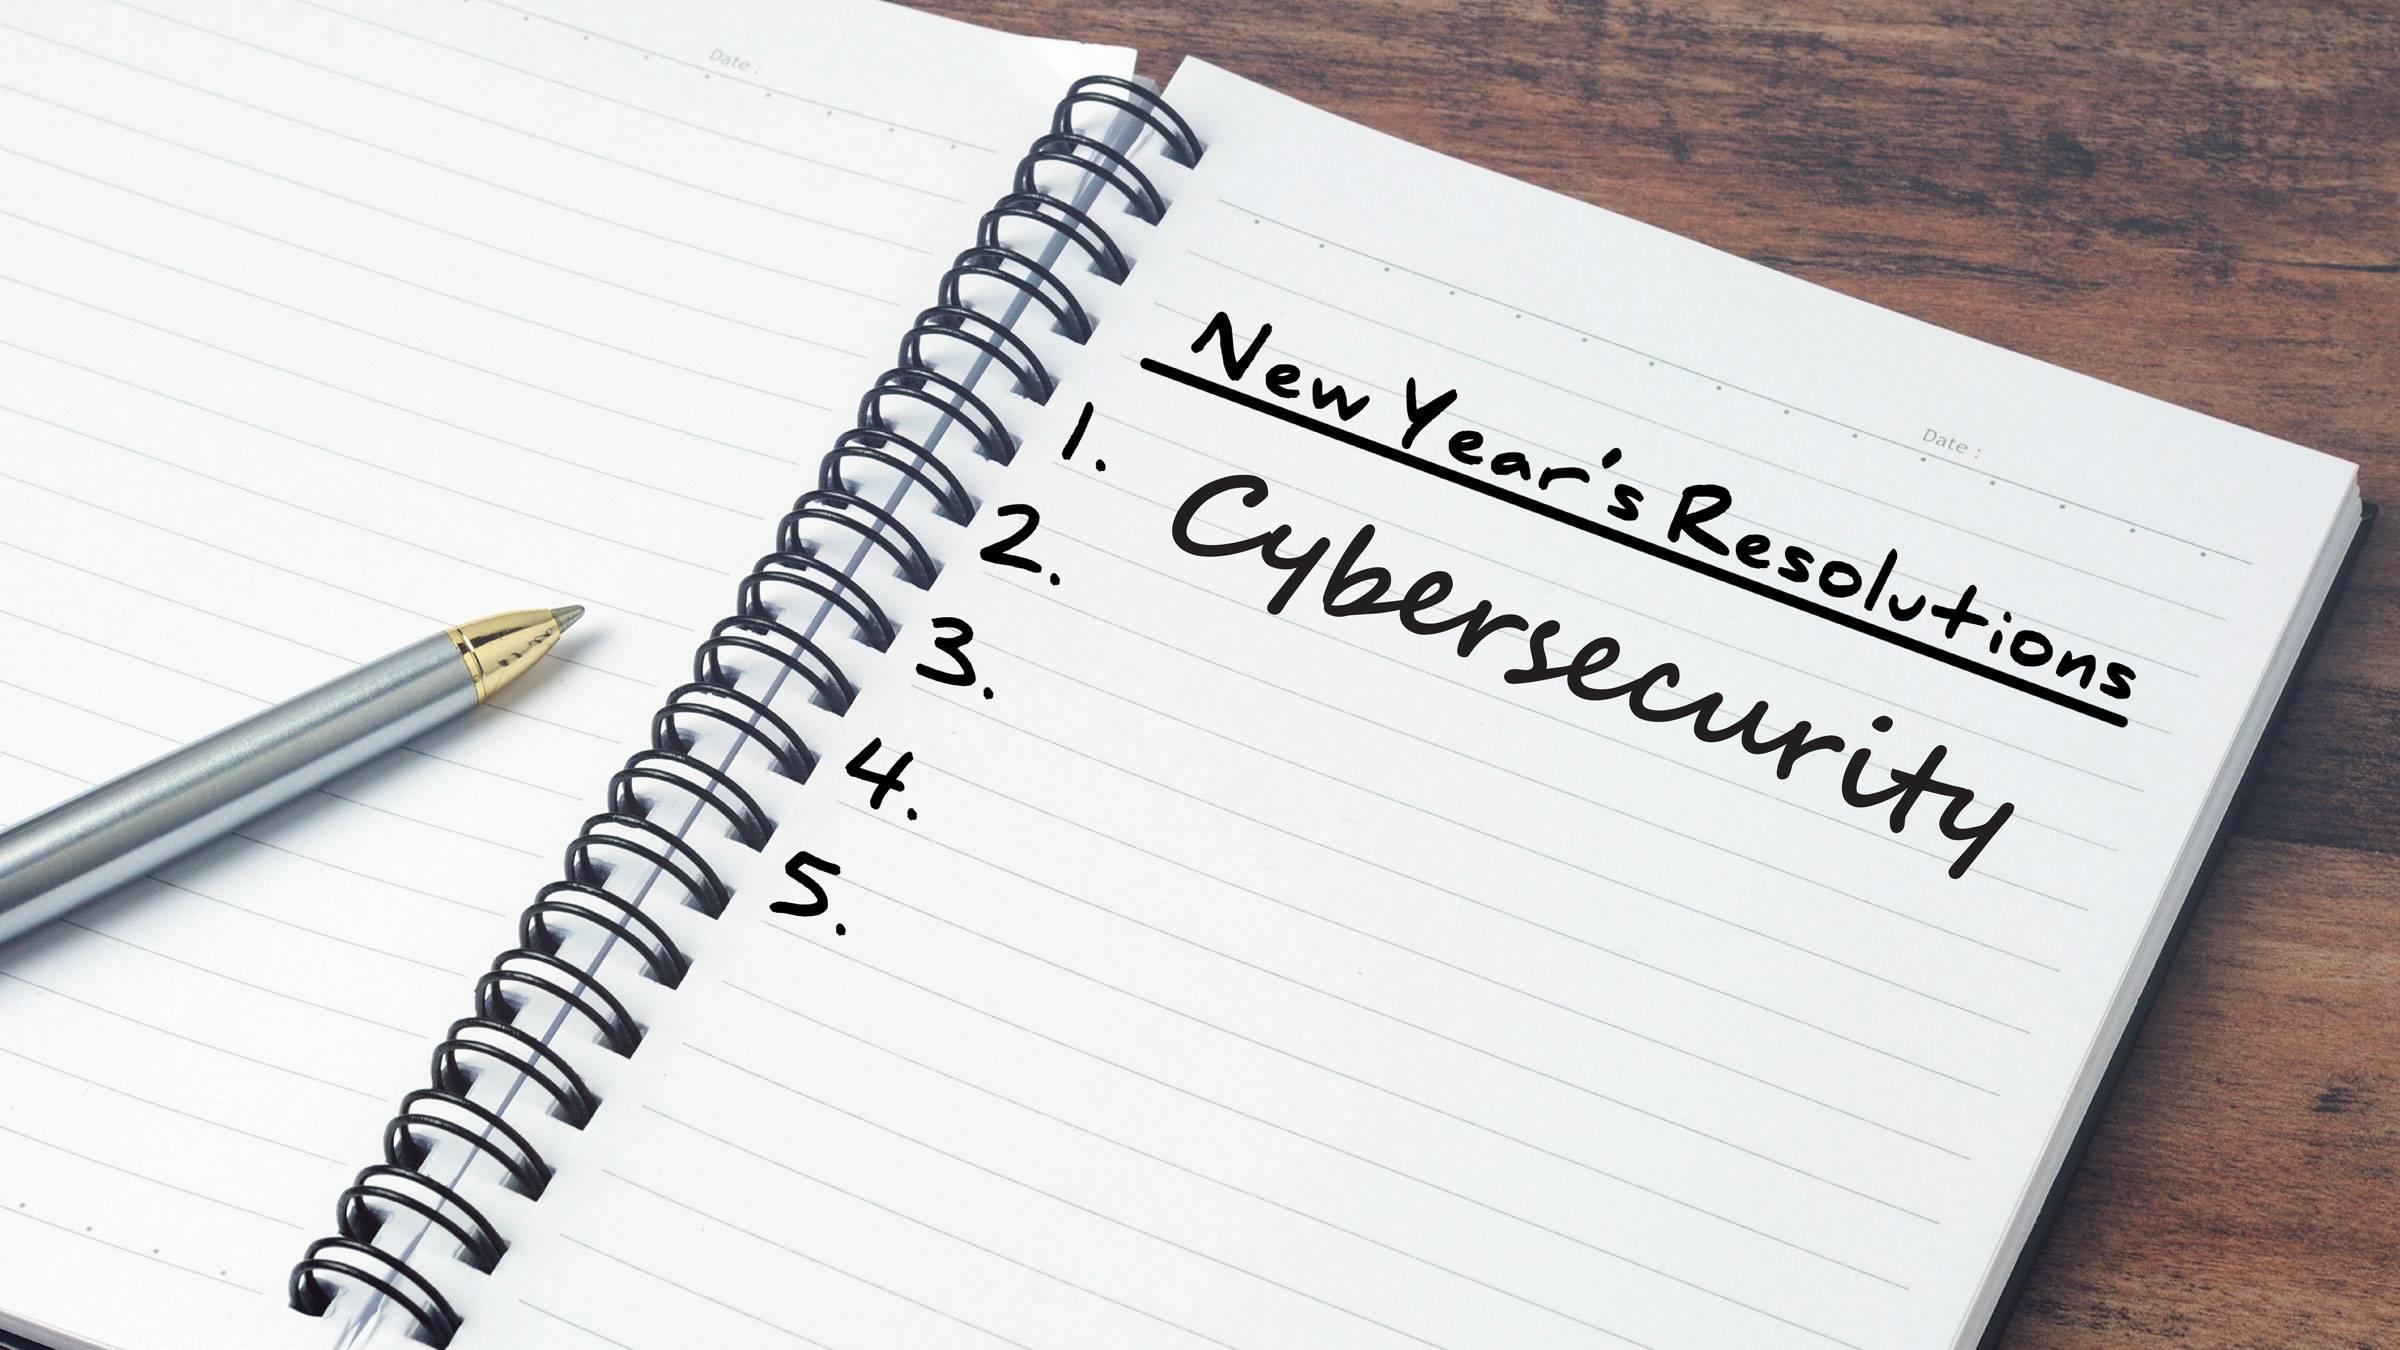 Date :
Date :
New Year's Resolutions
1. Cybersecurity
2.
3.
4.
5.